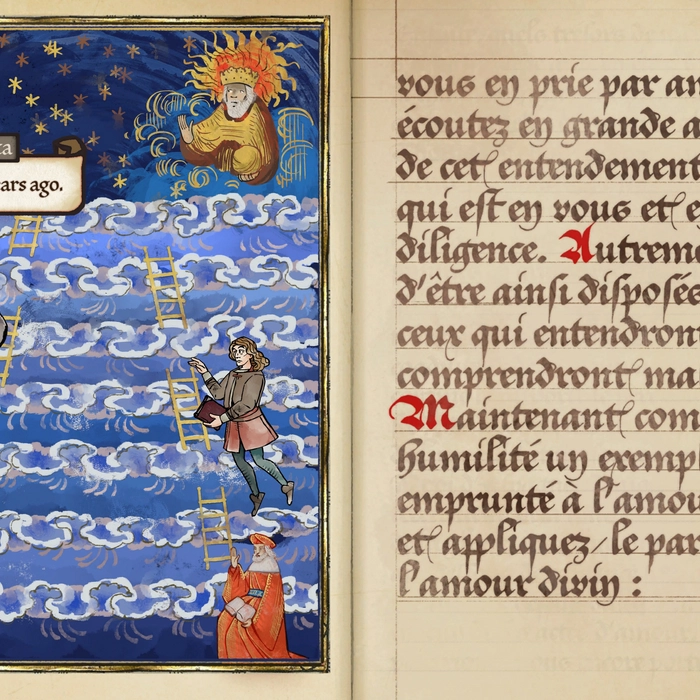 ta
ears ago.
vous en prie par am
écoutez en grande
de cet entendement
qui est en vous et e
diligence. Autreme
d'être ainsi disposés
ceux qui entendront
comprendront ma
Maintenant com
humilité un exempl
emprunté à l'amou
et appliquez-le par
l'amour divin :